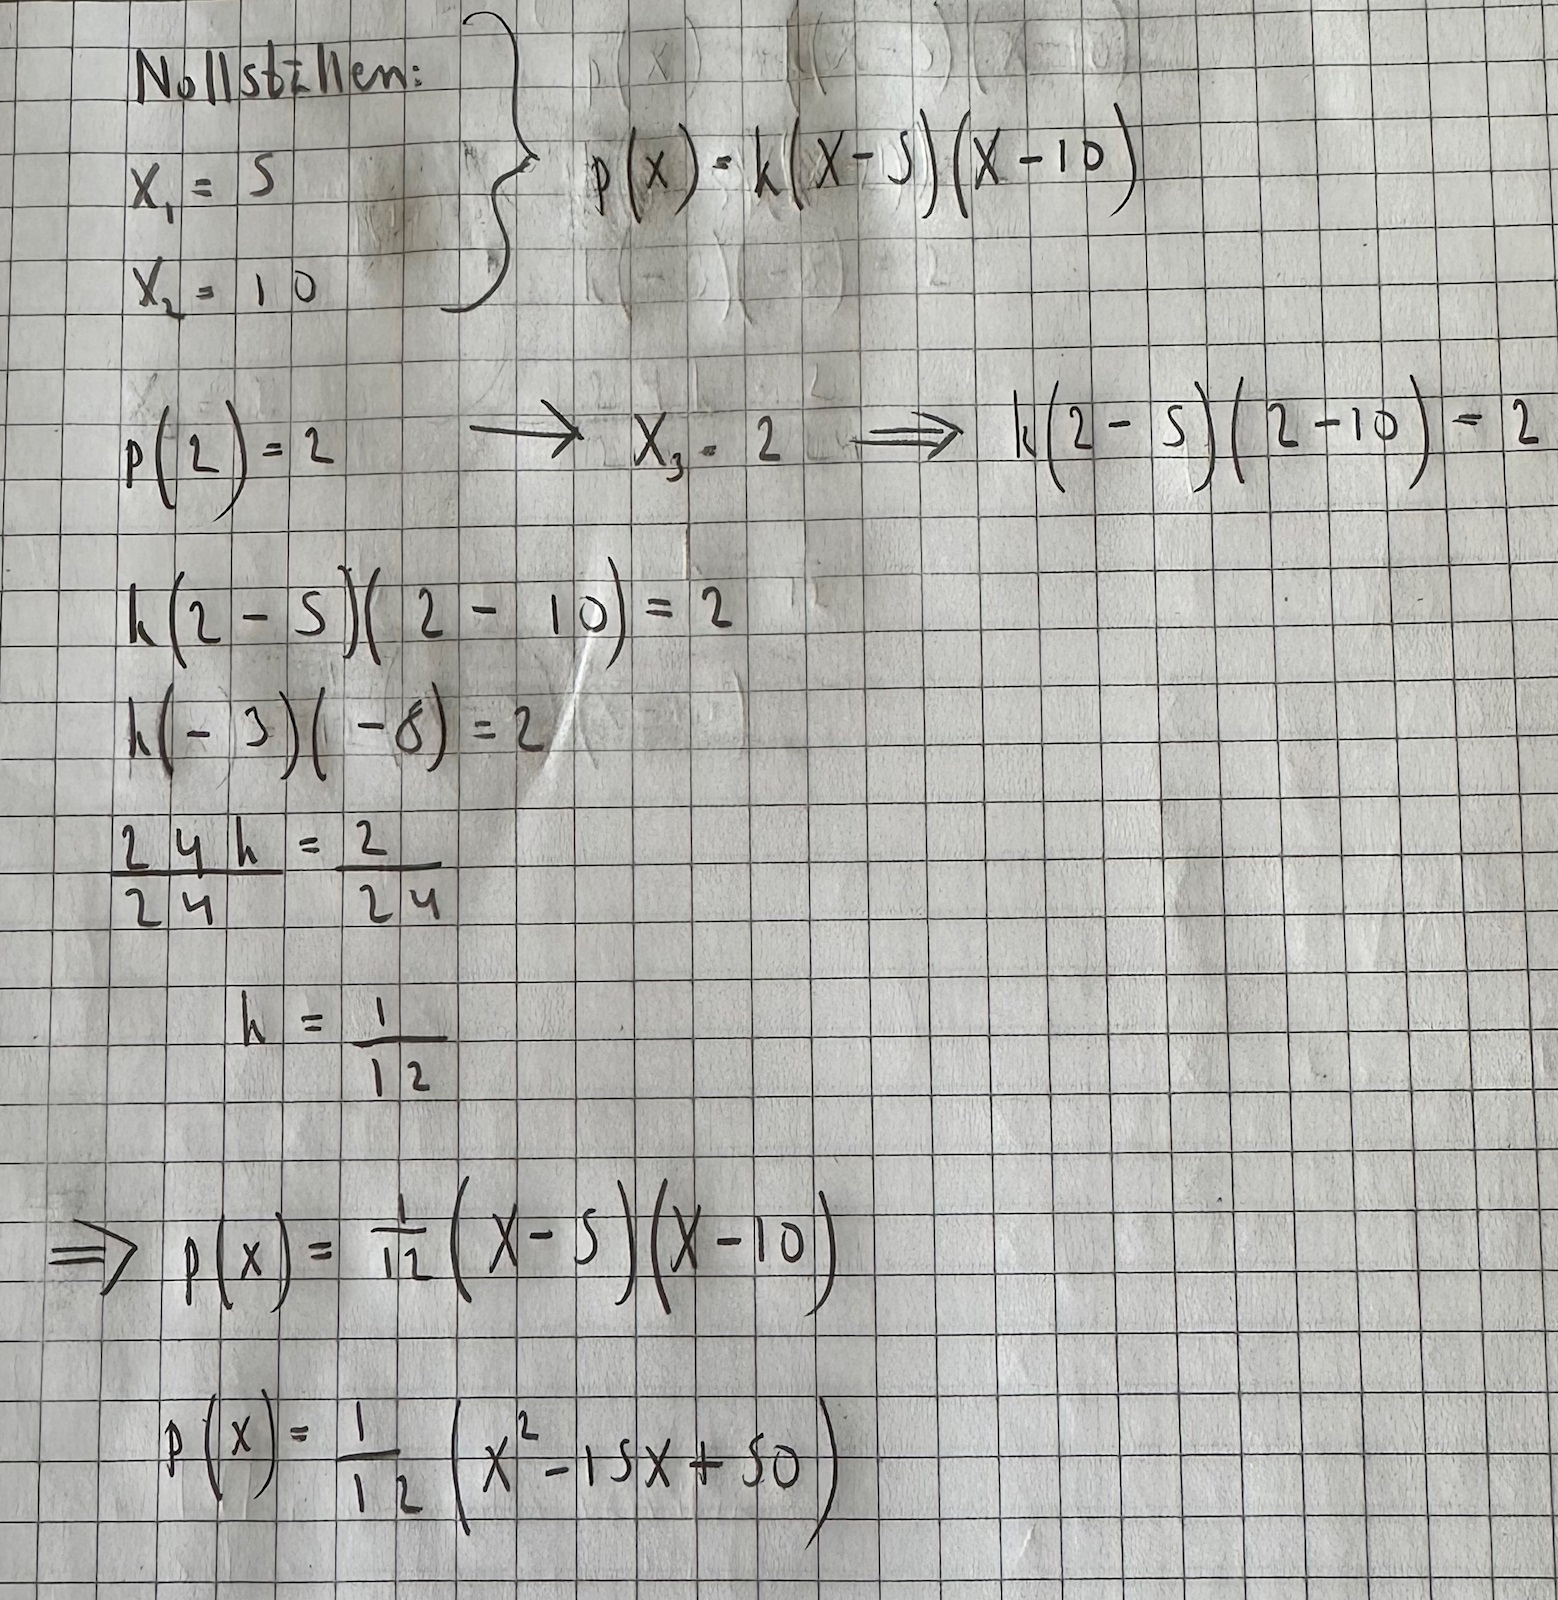 Nollställen:
x₁ = 5
x₂ = 10
p(x) = k(x-5)(x-10)
p(2) = 2 → x₃ = 2 ⟹ k(2-5)(2-10) = 2
k(2-5)(2-10) = 2
k(-3)(-8) = 2
24k/24 = 2/24
k = 1/12
⟹ p(x) = 1/12 (x-5)(x-10)
p(x) = 1/12 (x²-15x+50)